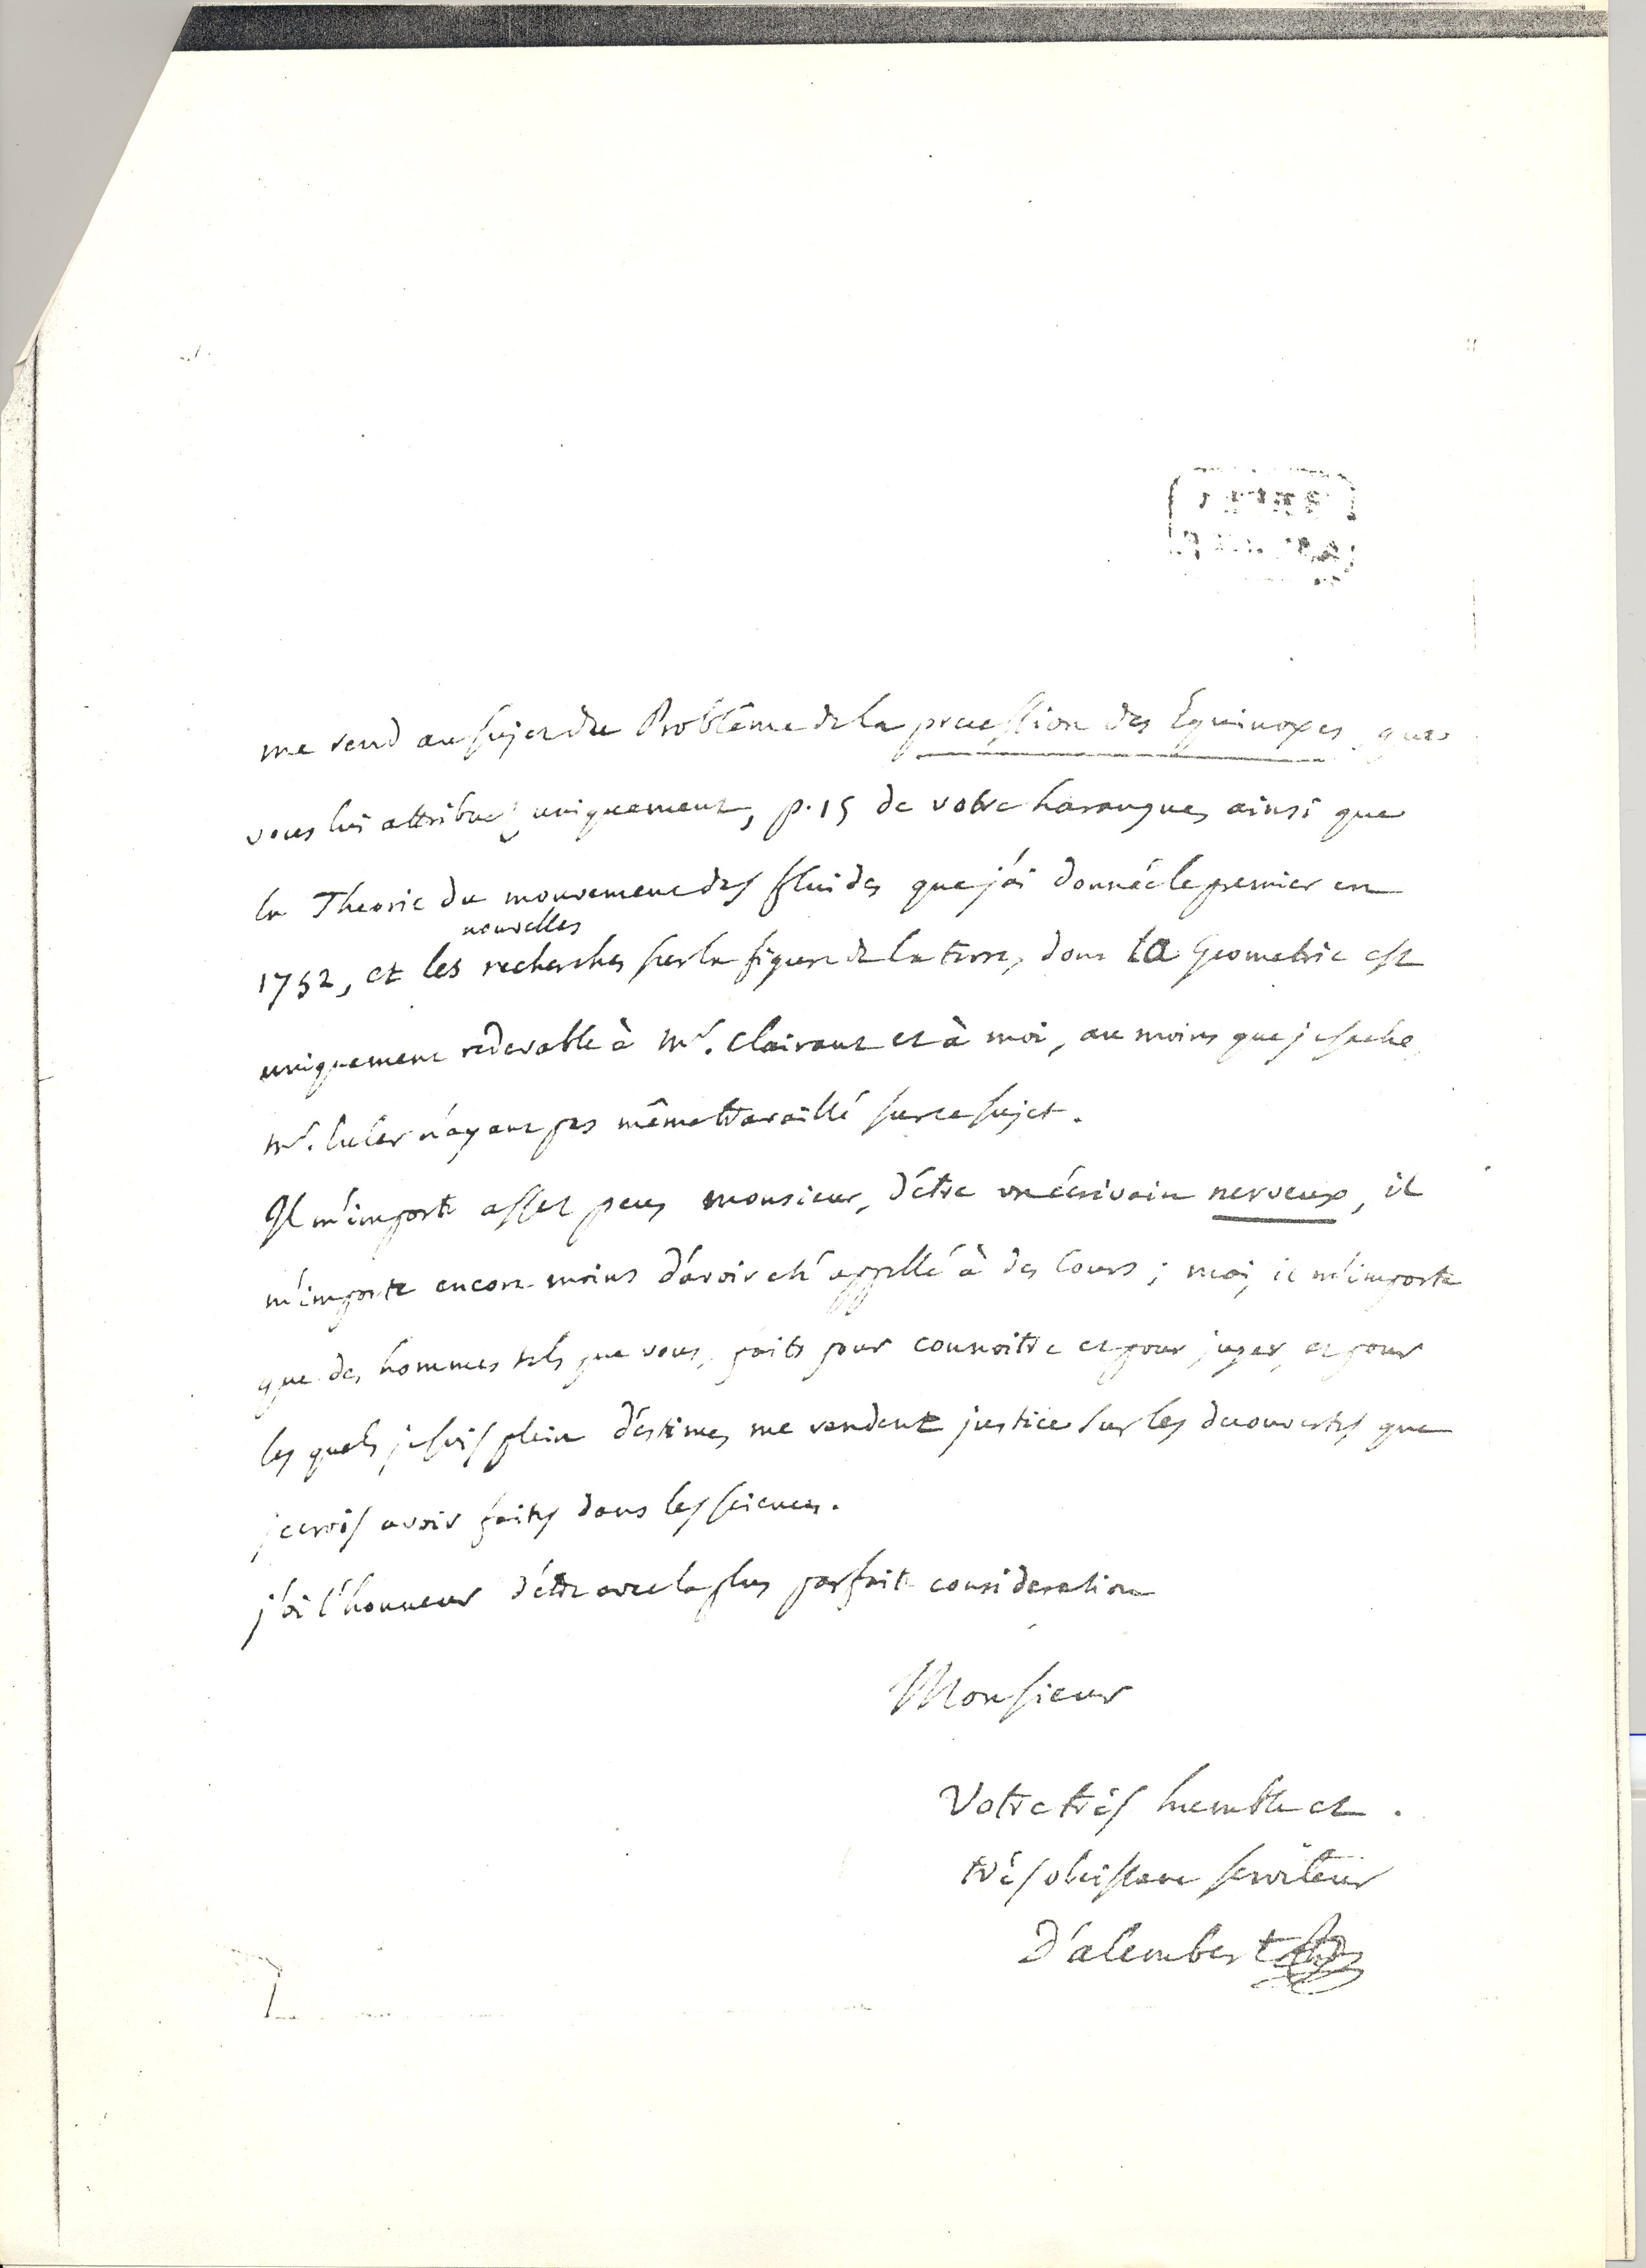 me rend au sujet du Problême de la precession des Equinoxes, que
vous lui attribuez uniquement, p. 15 de votre harangue, ainsi que
la Theorie du mouvement des fluides que j'ai donnée le premier en
nouvelles
1752, et les recherches sur la figure de la terre, dont la Geometrie est
uniquement redevable à Mr. Clairaut et à moi, au moins que je sache,
Mr. Euler n'ayant pas même travaillé sur ce sujet.
Il m'importe assez peu, monsieur, d'être un écrivain nerveux, il
m'importe encore moins d'avoir été appellé à des Cours; mais il m'importe
que des hommes tels que vous, faits pour connoître et pour juger, et pour
les quels je suis plein d'estime, me rendent justice sur les decouvertes que
je crois avoir faites dans les sciences.
j'ai l'honneur d'être avec la plus parfaite consideration
Monsieur
Votre très humble et
très obeissant serviteur
D'alembert